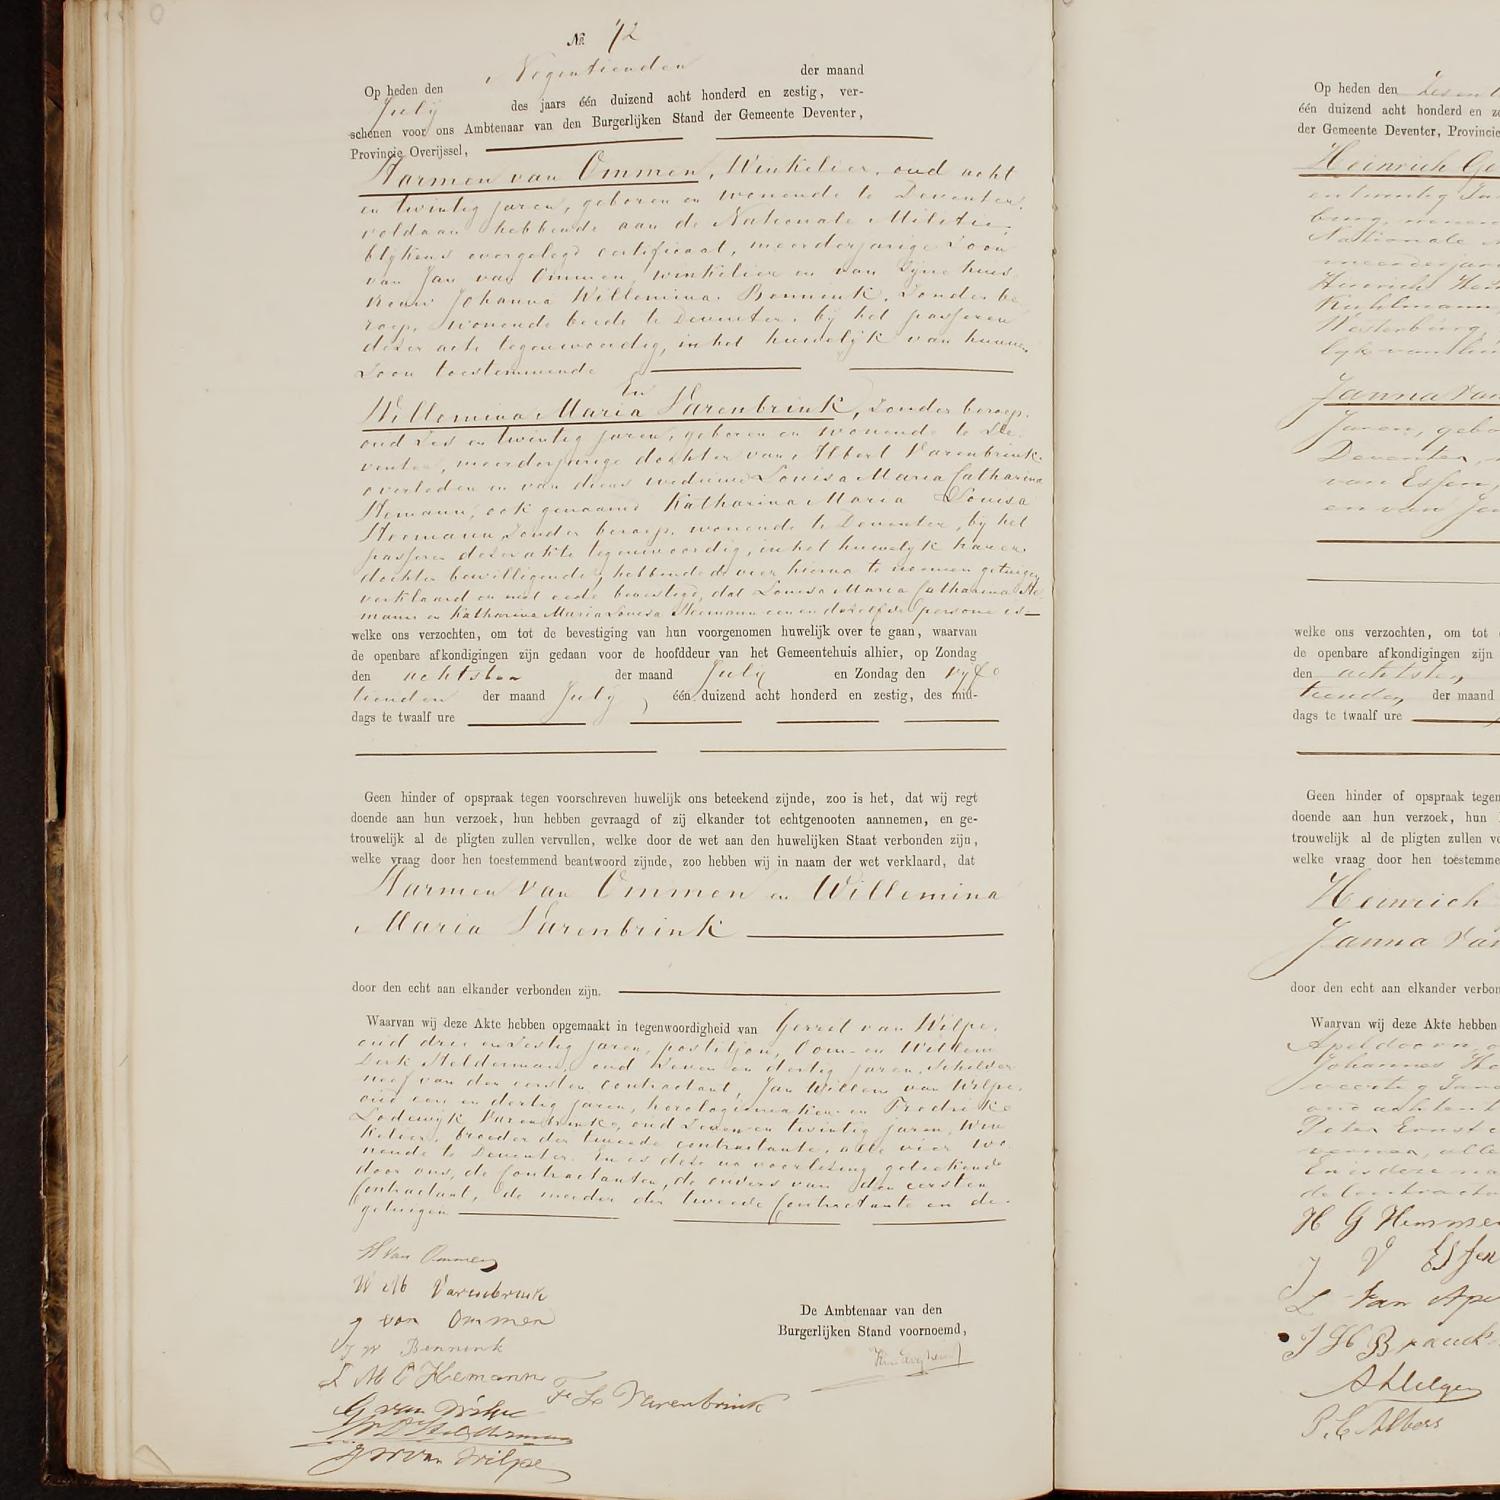 № 72
Op heden den Negentienden der maand
July des jaars één duizend acht honderd en zestig, ver-
schenen voor ons Ambtenaar van den Burgerlijken Stand der Gemeente Deventer,
Provincie Overijssel,
Harmen van Ommen, Winkelier, oud acht
en twintig jaren, geboren en wonende te Deventer,
voldaan hebbende aan de Nationale Militie
blijkens overgelegd certificaat, meerderjarige Zoon
van Jan van Ommen, winkelier en van Zyne huis
vrouw Johanna Willemina Bennink, Zonder be
roep, wonende beide te Deventer, bij het passeren
dezer acte tegenwoordig, in het huwelijk van hunnen
Zoon toestemmende
En
Willemina Maria Varenbrink, Zonder beroep,
oud Zes en twintig jaren, geboren en wonende te De
venter, meerderjarige dochter van Albert Varenbrink
overleden en van diens weduwe Louisa Maria Catharina
Hemann, ook genaamd Katharina Maria Louisa
Heemann, Zonder beroep, wonende te Deventer, bij het
passeren dezer akte tegenwoordig, in het huwelijk harer
dochter bewilligende, hebbende de vier hierna te noemen getuigen
verklaard en met eede bevestigd, dat Louisa Maria Catharina He-
mann en Katharina Maria Louisa Heemann een en dezelfde persoon is
welke ons verzochten, om tot de bevestiging van hun voorgenomen huwelijk over te gaan, waarvan
de openbare afkondigingen zijn gedaan voor de hoofddeur van het Gemeentehuis alhier, op Zondag
den achtsten der maand July en Zondag den vijf
tienden der maand July, één duizend acht honderd en zestig, des mid-
dags te twaalf ure
Geen hinder of opspraak tegen voorschreven huwelijk ons beteekend zijnde, zoo is het, dat wij regt
doende aan hun verzoek, hun hebben gevraagd of zij elkander tot echtgenooten aannemen, en ge-
trouwelijk al de pligten zullen vervullen, welke door de wet aan den huwelijken Staat verbonden zijn,
welke vraag door hen toestemmend beantwoord zijnde, zoo hebben wij in naam der wet verklaard, dat
Harmen van Ommen en Willemina
Maria Varenbrink
door den echt aan elkander verbonden zijn.
Waarvan wij deze Akte hebben opgemaakt in tegenwoordigheid van Gerret van Wilpe,
oud drie en Zestig jaren, postiljon, Oom en Willem
Derk Helderman, oud Zeven en dertig jaren, Schilder
neef van den eersten contractant, Jan Willem van Wilpe,
oud een en dertig jaren, horologiemaker en Fredrik
Lodewijk Varenbrink, oud Zeven en twintig jaren, Win
kelier, broeder der tweede contractante, alle vier wo
nende te Deventer. En is deze na voorlezing geteekend
door ons, de Contractanten, de ouders van den eersten
Contractant, de moeder der tweede Contractante en de
getuigen
H van Ommen
W M Varenbrink
J van Ommen
J W Bennink
L M C Hemann
F L Varenbrink
G van Wilpe
J W van Wilpe
De Ambtenaar van den
Burgerlijken Stand voornoemd,
Op heden den
één duizend acht honderd en
der Gemeente Deventer, Provincie
Heinrich Ge
en twintig
Nationale
Westerburg,
Janna Van
Jaren, gebo
Deventer,
van Essen,
en van
welke ons verzochten, om tot
de openbare afkondigingen zijn
den achtsten
tienden, der maand
dags te twaalf ure
Geen hinder of opspraak tegen
doende aan hun verzoek, hun
trouwelijk al de pligten zullen
welke vraag door hen toestemme
Heinrich
Janna Van
door den echt aan elkander verbon
Waarvan wij deze Akte hebben
Apeldoorn,
Johannes
Peter Ernst
En is deze na
H G Hemme
J V Essen
L Van Ape
J H Brauck
P. C. Albers